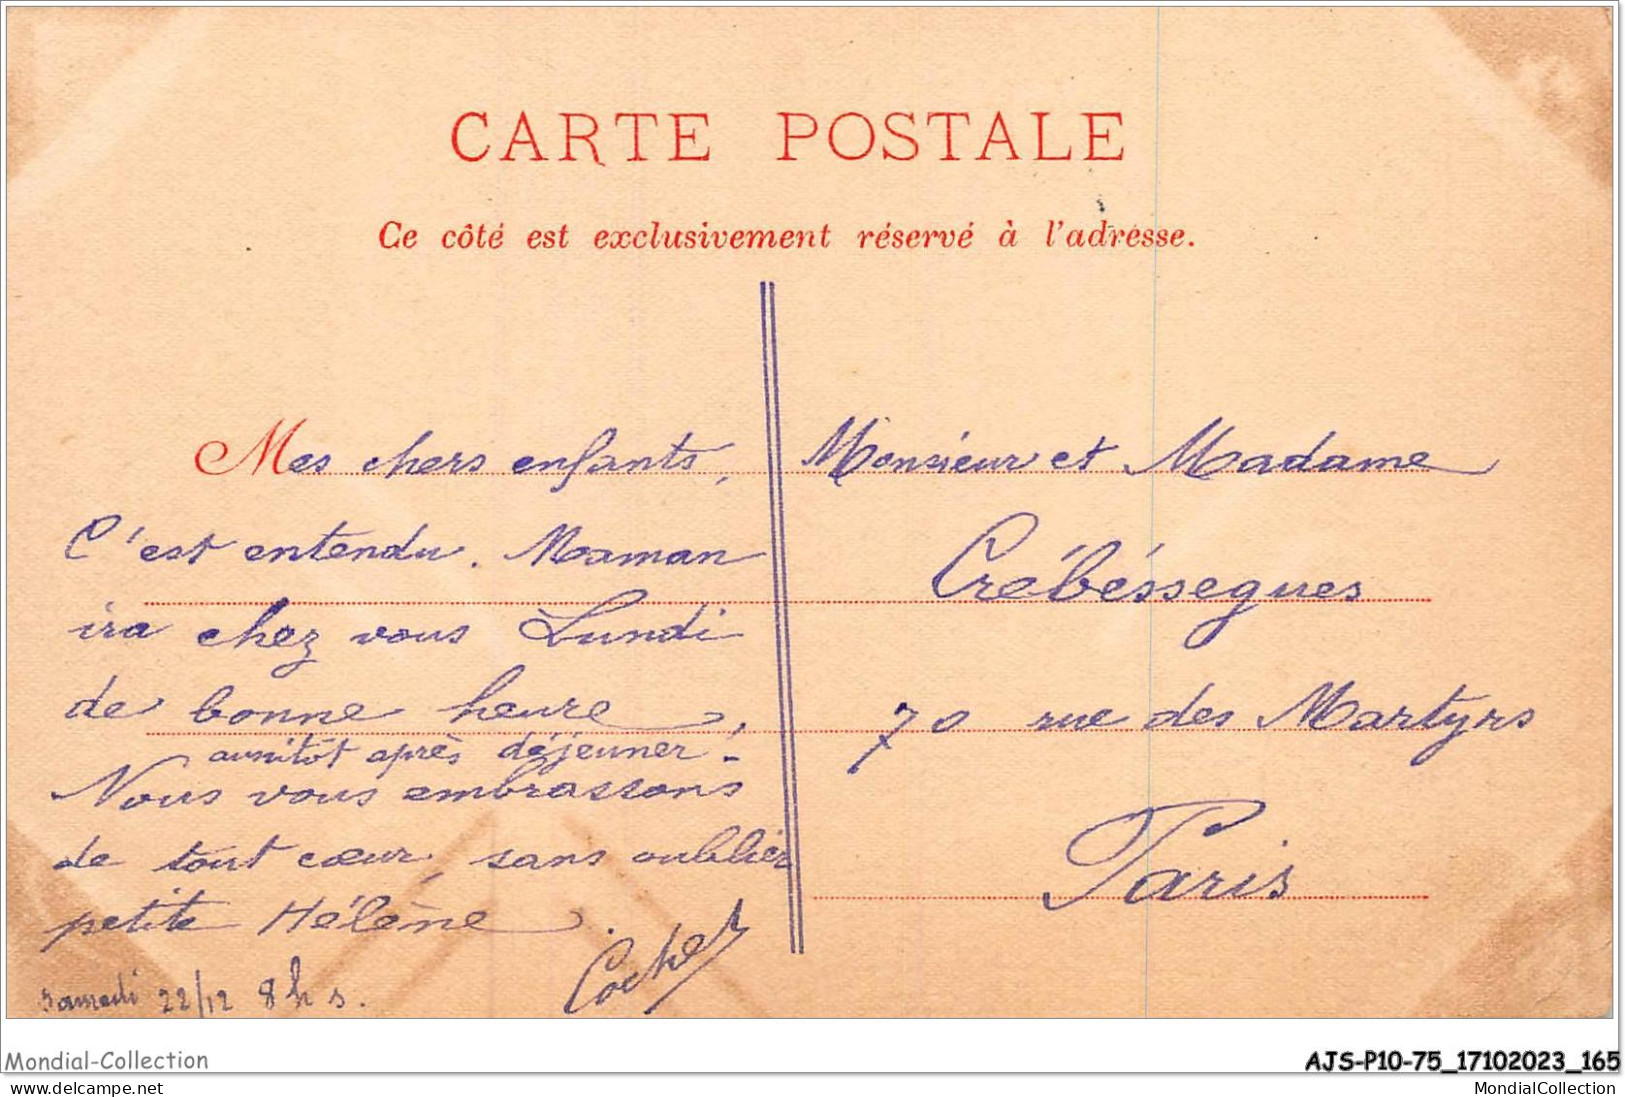 CARTE POSTALE
Ce côté est exclusivement réservé à l'adresse.
Mes chers enfants,
C'est entendu. Maman
ira chez vous Lundi
de bonne heure,
aussitôt après déjeuner.
Nous vous embrassons
de tout cœur, sans oublier
petite Hélène.
Samedi 22/12 8 h s.
Monsieur et Madame
Crébésségues
70 rue des Martyrs
Paris
Mondial-Collection
AJS-P10-75_17102023_165
www.delcampe.net
MondialCollection